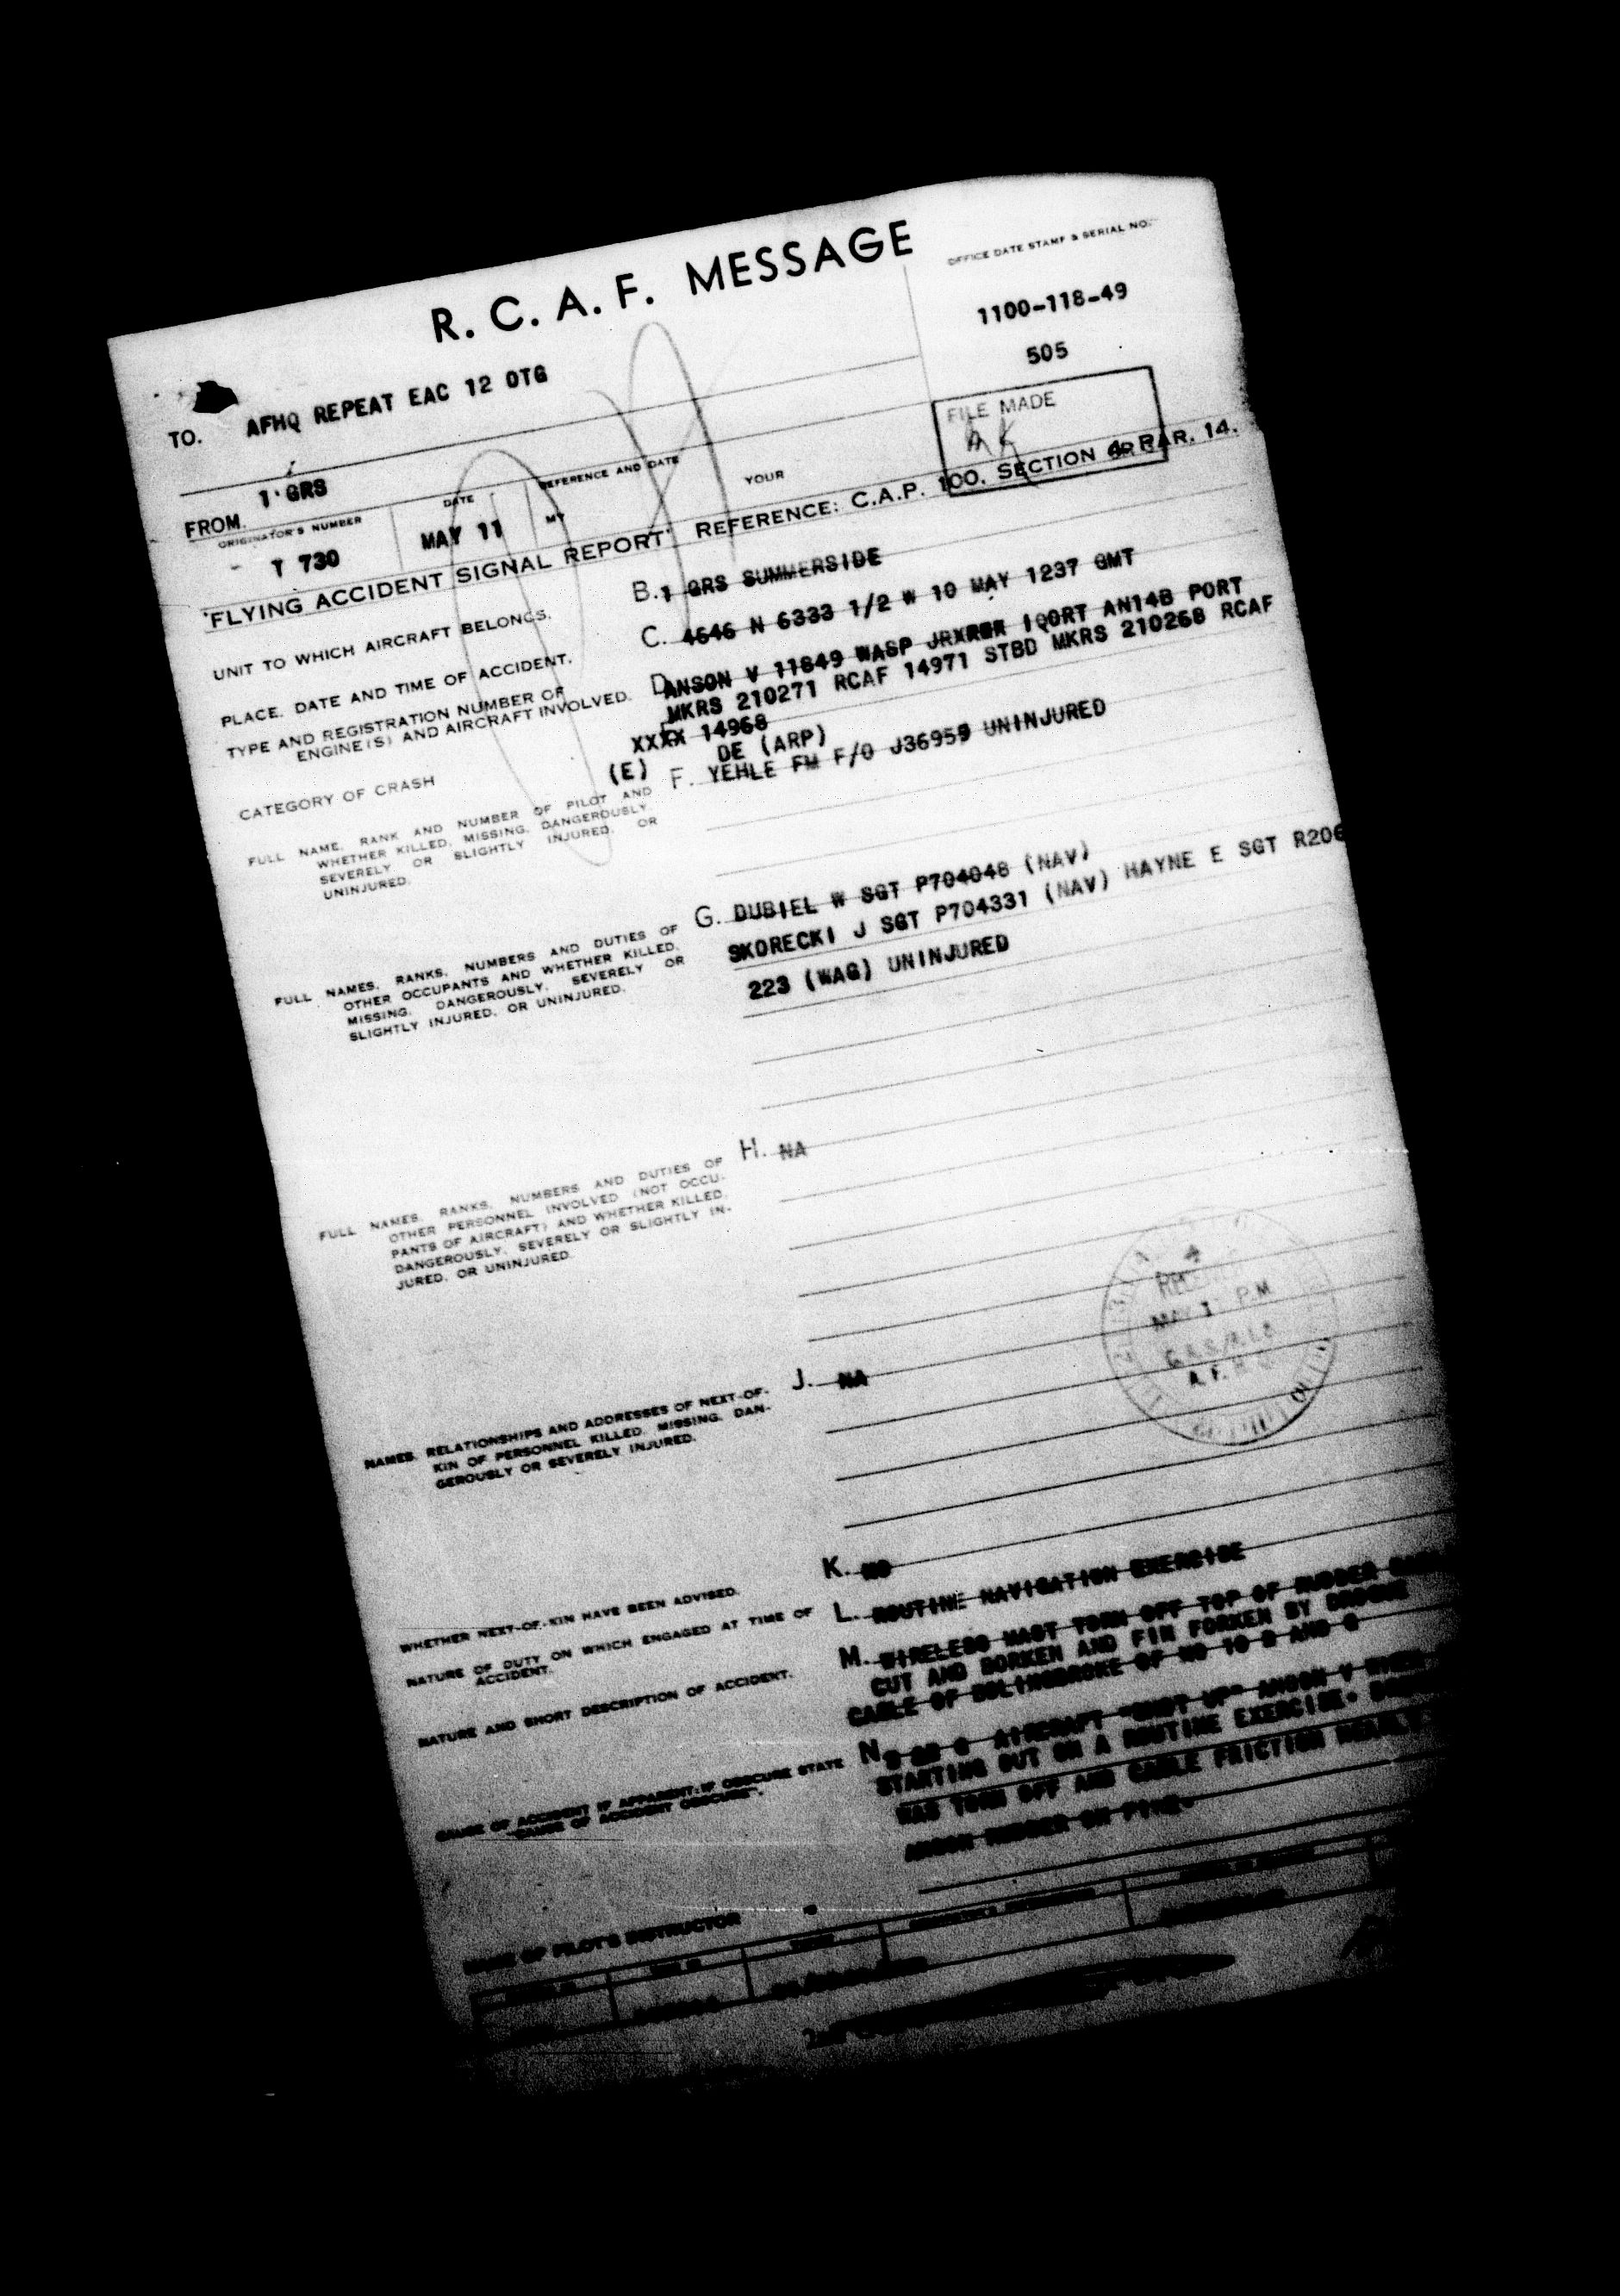 R. C. A. F. MESSAGE
OFFICE DATE STAMP & SERIAL NO.
1100-118-49
505
TO. AFHQ REPEAT EAC 12 OTG
FILE MADE
AK
FROM. 1 GRS
ORIGINATOR'S NUMBER
T 730
DATE
MAY 11
REFERENCE AND DATE
MY
YOUR
"FLYING ACCIDENT SIGNAL REPORT" REFERENCE: C.A.P. 100, SECTION 4, PAR. 14.
UNIT TO WHICH AIRCRAFT BELONGS.
B. 1 GRS SUMMERSIDE
PLACE, DATE AND TIME OF ACCIDENT.
C. 4646 N 6333 1/2 W 10 MAY 1237 GMT
TYPE AND REGISTRATION NUMBER OF
ENGINE(S) AND AIRCRAFT INVOLVED.
D. ANSON V 11849 WASP IQORT AN14B PORT
MKRS 210271 RCAF 14971 STBD MKRS 210268 RCAF
XXXX 14968
CATEGORY OF CRASH
(E) DE (ARP)
FULL NAME, RANK AND NUMBER OF PILOT AND
WHETHER KILLED, MISSING, DANGEROUSLY,
SEVERELY OR SLIGHTLY INJURED, OR
UNINJURED.
F. YEHLE FM F/O J36959 UNINJURED
FULL NAMES, RANKS, NUMBERS AND DUTIES OF
OTHER OCCUPANTS AND WHETHER KILLED,
MISSING, DANGEROUSLY, SEVERELY OR
SLIGHTLY INJURED, OR UNINJURED.
G. DUBIEL W SGT P704048 (NAV)
SKORECKI J SGT P704331 (NAV) HAYNE E SGT R206
223 (WAG) UNINJURED
FULL NAMES, RANKS, NUMBERS AND DUTIES OF
OTHER PERSONNEL INVOLVED (NOT OCCU-
PANTS OF AIRCRAFT) AND WHETHER KILLED,
DANGEROUSLY, SEVERELY OR SLIGHTLY IN-
JURED, OR UNINJURED.
H. NA
RECEIVED
MAY P.M
A.F.H.Q
NAMES, RELATIONSHIPS AND ADDRESSES OF NEXT-OF-
KIN OF PERSONNEL KILLED, MISSING, DAN-
GEROUSLY OR SEVERELY INJURED.
J. NA
WHETHER NEXT-OF-KIN HAVE BEEN ADVISED.
K. NO
NATURE OF DUTY ON WHICH ENGAGED AT TIME OF
ACCIDENT.
L. ROUTINE NAVIGATION EXERCISE
NATURE AND SHORT DESCRIPTION OF ACCIDENT.
M. WIRELESS MAST TORN OFF TOP OF RUDDER
CUT AND BORKEN AND FIN FORKEN BY DROGUE
CABLE OF BOLINGBROKE OF NO 10 B AND G
CAUSE OF ACCIDENT IF APPARENT; IF OBSCURE STATE
"CAUSE OF ACCIDENT OBSCURE".
N. B AND G AIRCRAFT "SHOT UP" ANSON V WHEN
STARTING OUT ON A ROUTINE EXERCISE.
WAS TORN OFF AND CABLE FRICTION
ANSON RUDDER ON FIRE.
NAME OF PILOT'S INSTRUCTOR